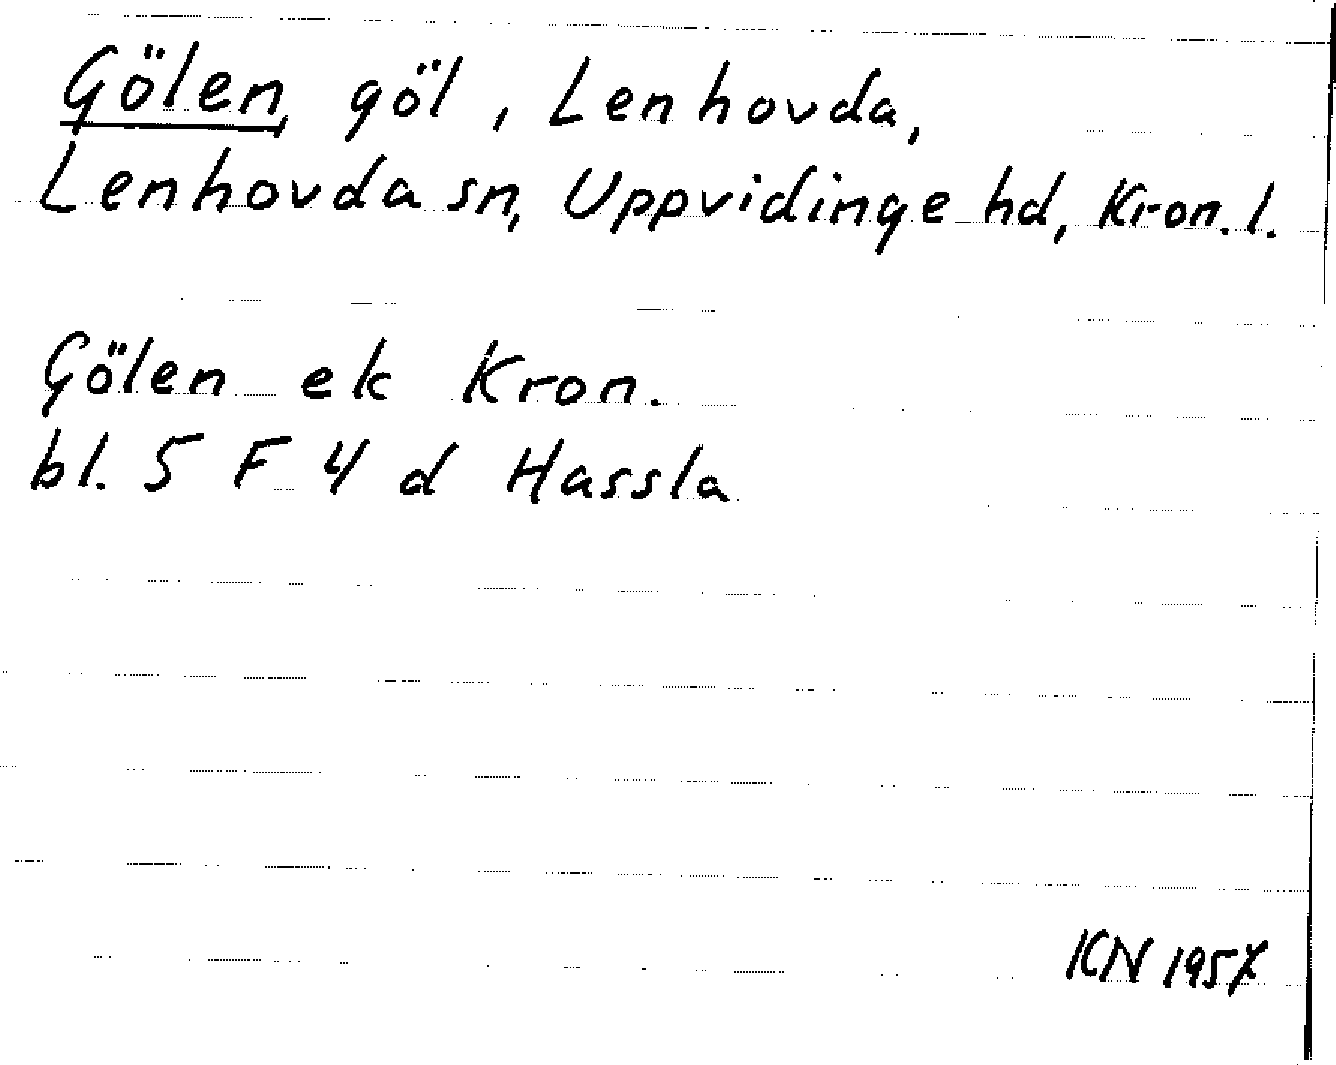 Gölen, göl, Lenhovda,
Lenhovda sn, Uppvidinge hd, Kron. l.
Gölen ek Kron.
bl. 5 F 4 d Hassla
KN 1957